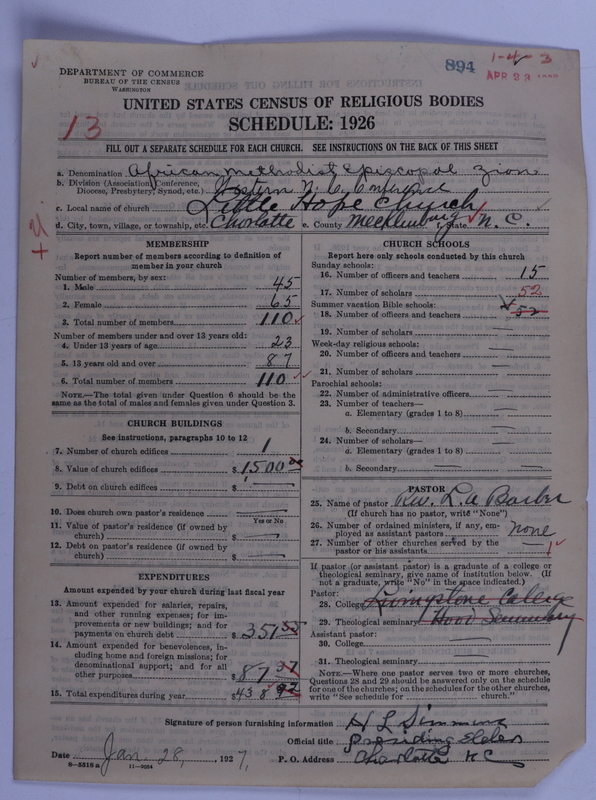 894
1-4-3
APR 23
DEPARTMENT OF COMMERCE
BUREAU OF THE CENSUS
WASHINGTON
UNITED STATES CENSUS OF RELIGIOUS BODIES
13
SCHEDULE: 1926
FILL OUT A SEPARATE SCHEDULE FOR EACH CHURCH. SEE INSTRUCTIONS ON THE BACK OF THIS SHEET
a. Denomination African Methodist Episcopal Zion
b. Division (Association, Conference, Diocese, Presbytery, Synod, etc.) Western N. C. Conference
c. Local name of church Little Hope Church
d. City, town, village, or township, etc. Charlotte e. County Mecklenburg f. State N. C.
MEMBERSHIP
Report number of members according to definition of member in your church
Number of members, by sex:
1. Male 45
2. Female 65
3. Total number of members 110
Number of members under and over 13 years old:
4. Under 13 years of age 23
5. 13 years old and over 87
6. Total number of members 110
NOTE.—The total given under Question 6 should be the same as the total of males and females given under Question 3.
CHURCH BUILDINGS
See instructions, paragraphs 10 to 12
7. Number of church edifices 1
8. Value of church edifices $1500 00
9. Debt on church edifices $
10. Does church own pastor's residence
Yes or No
11. Value of pastor's residence (if owned by church) $
12. Debt on pastor's residence (if owned by church) $
EXPENDITURES
Amount expended by your church during last fiscal year
13. Amount expended for salaries, repairs, and other running expenses; for improvements or new buildings; and for payments on church debt $351 55
14. Amount expended for benevolences, including home and foreign missions; for denominational support; and for all other purposes $87 37
15. Total expenditures during year $438 92
CHURCH SCHOOLS
Report here only schools conducted by this church
Sunday schools:
16. Number of officers and teachers 15
17. Number of scholars 52
Summer vacation Bible schools:
18. Number of officers and teachers 52
19. Number of scholars
Week-day religious schools:
20. Number of officers and teachers
21. Number of scholars
Parochial schools:
22. Number of administrative officers
23. Number of teachers—
a. Elementary (grades 1 to 8)
b. Secondary
24. Number of scholars—
a. Elementary (grades 1 to 8)
b. Secondary
PASTOR
25. Name of pastor Rev. L. A. Barber
(If church has no pastor, write "None")
26. Number of ordained ministers, if any, employed as assistant pastors None
27. Number of other churches served by the pastor or his assistants 1
If pastor (or assistant pastor) is a graduate of a college or theological seminary, give name of institution below. (If not a graduate, write "No" in the space indicated.)
Pastor:
28. College Livingstone College
29. Theological seminary Hood Seminary
Assistant pastor:
30. College
31. Theological seminary
NOTE.—Where one pastor serves two or more churches, Questions 28 and 29 should be answered only on the schedule for one of the churches; on the schedules for the other churches, write "See schedule for church."
Signature of person furnishing information H L Simmons
Official title Presiding Elder
Date Jan. 28, 1927, P. O. Address Charlotte N C
8-5318a 11-9034